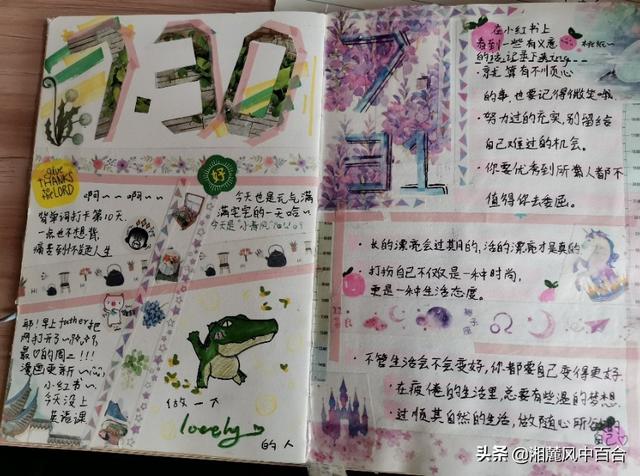 7.30
give
THANKS
to the
LORD
好
啊~~啊~~
背单词打卡第10天
一点也不想背,
痛苦到不能人生
今天也是元气满
满宅宅的一天哈~
今天是"小清风"
耶!早上father把
网打开了
最♡的周二!!!
漫画更新
小红书~
今天没上
英语课
做一下
lovely
的人
7
31
在小红书上
看到一些有义意
的话记录下来ing...
·就算有不顺心
的事,也要记得微笑哦.
·努力过的充实,别留给
自己难过的机会。
·你要优秀到所有人都不
值得你去委屈。
·长的漂亮会过期的,活的漂亮才是真的
·打扮自己不仅是一种时尚,
更是一种生活态度。
·不管生活会不会变好,你都要自己变得更好
·在疲倦的生活里,总要有些温的梦想.
·过恒其自然的生活,做随心所欲的
自己
头条 @湘麓风中百合